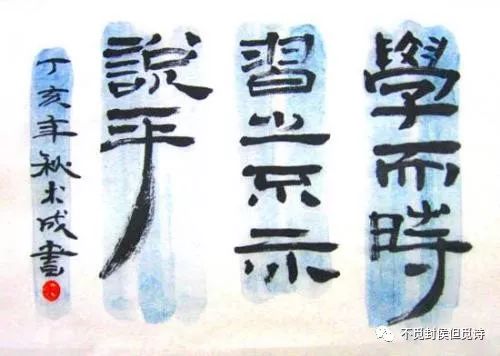 學而時
習之不亦
說乎
丁亥年秋成書
不觅封侯但觅诗